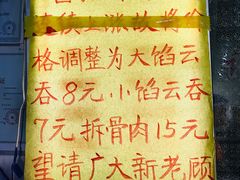 续上涨故将价
格调整为大馅云
吞8元小馅云吞
7元拆骨肉15元
望请广大新老顾